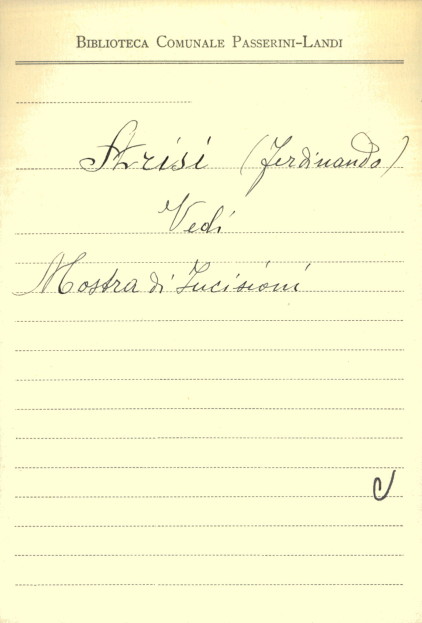 BIBLIOTECA COMUNALE PASSERINI-LANDI
Arisi (Ferdinando)
Vedi
Mostra di Incisioni